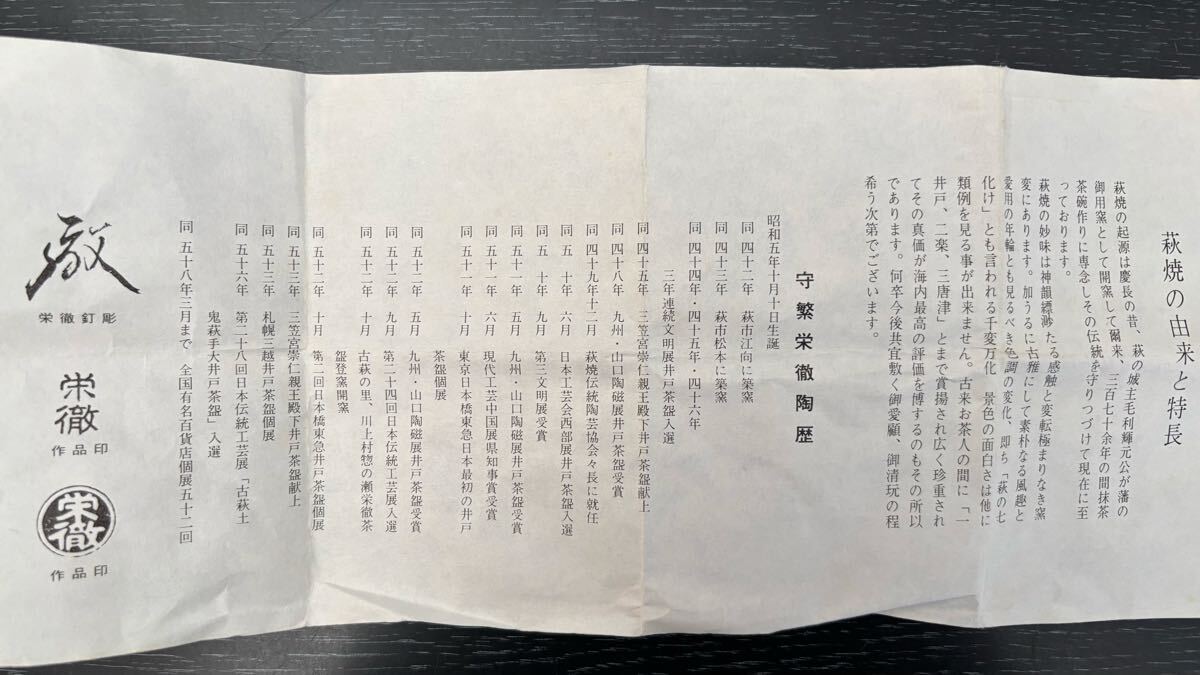 萩焼の由来と特長
萩焼の起源は慶長の昔、萩の城主毛利輝元公が藩の
御用窯として開窯して爾来、三百七十余年の間抹茶
茶碗作りに専念しその伝統を守りつづけて現在に至
っております。
萩焼の妙味は神韻縹渺たる感触と変転極まりなき窯
変にあります。加うるに古雅にして素朴なる風趣と
愛用の年輪とも見るべき色調の変化、即ち「萩の七
化け」とも言われる千変万化 景色の面白さは他に
類例を見る事が出来ません。古来お茶人の間に「一
井戸、二楽、三唐津」とまで賞揚され広く珍重され
てその真価が海内最高の評価を博するのもその所以
であります。何卒今後共宜敷く御愛顧、御清玩の程
希う次第でございます。
守繁栄徹陶歴
昭和五年十月十日生誕
同 四十二年 萩市江向に築窯
同 四十三年 萩市松本に築窯
同 四十四年・四十五年・四十六年
三年連続文明展井戸茶盌入選
同 四十五年 三笠宮崇仁親王殿下井戸茶盌献上
同 四十八年 九州・山口陶磁展井戸茶盌受賞
同 四十九年十二月 萩焼伝統陶芸協会々長に就任
同 五十年 六月 日本工芸会西部展井戸茶盌入選
同 五十年 九月 第三文明展受賞
同 五十一年 五月 九州・山口陶磁展井戸茶盌受賞
同 五十一年 六月 現代工芸中国展県知事賞受賞
同 五十一年 十月 東京日本橋東急日本最初の井戸
茶盌個展
同 五十二年 五月 九州・山口陶磁展井戸茶盌受賞
同 五十二年 九月 第二十四回日本伝統工芸展入選
同 五十二年 十月 古萩の里、川上村惣の瀬栄徹茶
盌登窯開窯
同 五十二年 十月 第二回日本橋東急井戸茶盌個展
同 五十三年 三笠宮崇仁親王殿下井戸茶盌献上
同 五十三年 札幌三越井戸茶盌個展
同 五十六年 第二十八回日本伝統工芸展「古萩土
鬼萩手大井戸茶盌」入選
同 五十八年三月まで 全国有名百貨店個展五十二回
栄徹釘彫
栄徹
作品印
栄徹
作品印